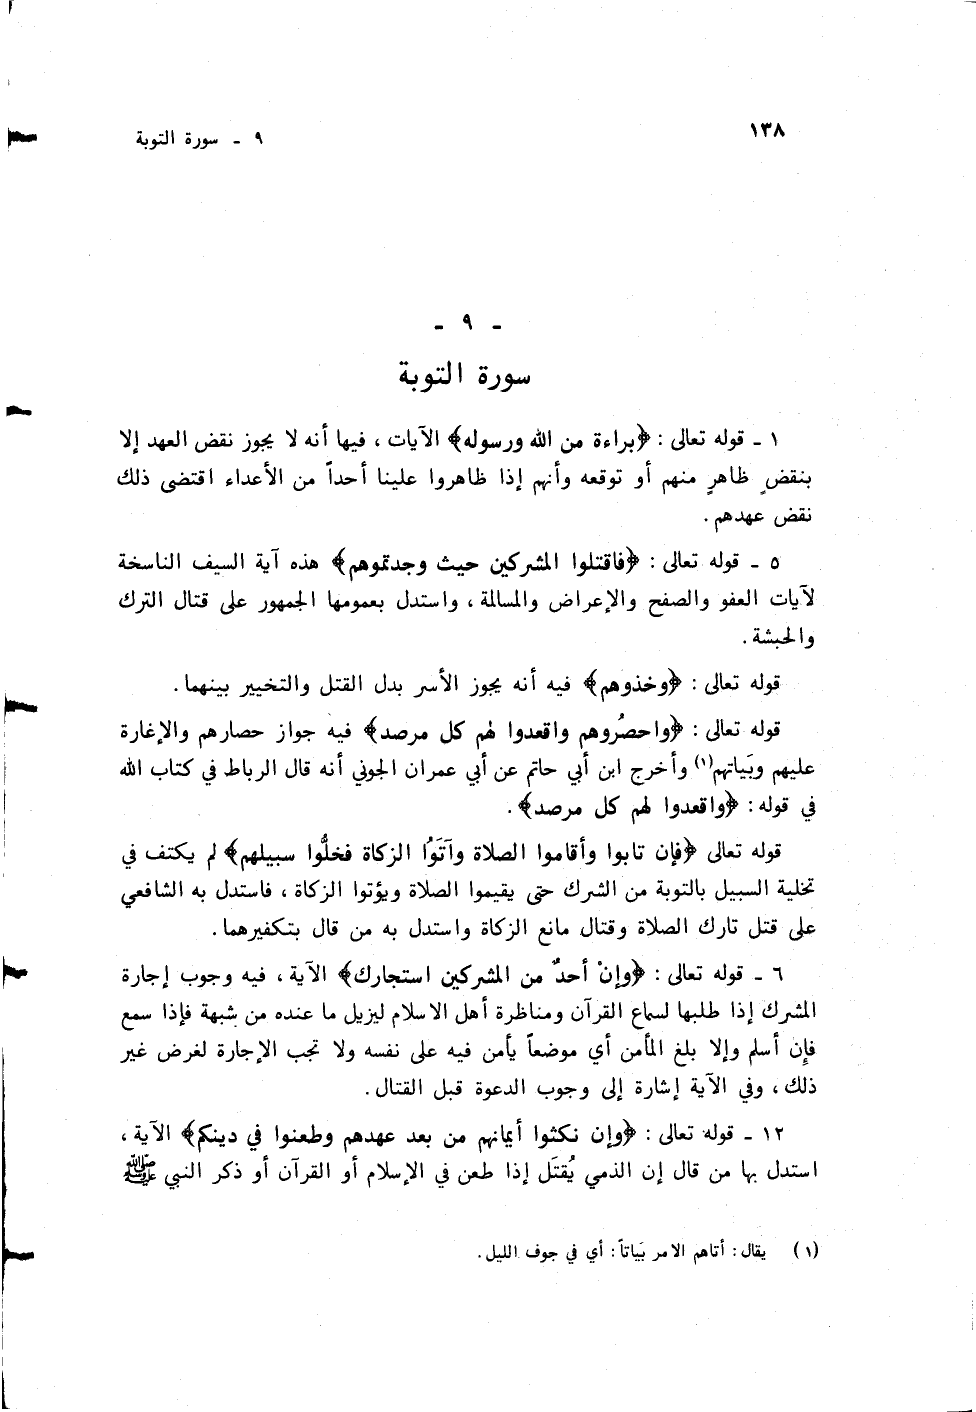 ١٣٨
٩ ـ سورة التوبة
ـ ٩ ـ
سورة التوبة
١ ـ قوله تعالى : ﴿براءة من الله ورسوله﴾ الآيات ، فيها أنه لا يجوز نقض العهد إلا
بنقضٍ ظاهرٍ منهم أو توقعه وأنهم إذا ظاهروا علينا أحداً من الأعداء اقتضى ذلك
نقض عهدهم .
٥ ـ قوله تعالى : ﴿فاقتلوا المشركين حيث وجدتموهم﴾ هذه آية السيف الناسخة
لآيات العفو والصفح والإعراض والمسالمة ، واستدل بعمومها الجمهور على قتال الترك
والحبشة .
قوله تعالى : ﴿وخذوهم﴾ فيه أنه يجوز الأسر بدل القتل والتخيير بينهما .
قوله تعالى : ﴿واحصُروهم واقعدوا لهم كل مرصد﴾ فيه جواز حصارهم والإغارة
عليهم وبَياتهم(١) وأخرج ابن أبي حاتم عن أبي عمران الجوني أنه قال الرباط في كتاب الله
في قوله : ﴿واقعدوا لهم كل مرصد﴾ .
قوله تعالى ﴿فإن تابوا وأقاموا الصلاة وآتَوُا الزكاة فخلُّوا سبيلهم﴾ لم يكتف في
تخلية السبيل بالتوبة من الشرك حتى يقيموا الصلاة ويؤتوا الزكاة ، فاستدل به الشافعي
على قتل تارك الصلاة وقتال مانع الزكاة واستدل به من قال بتكفيرهما .
٦ ـ قوله تعالى : ﴿وإنْ أحدٌ من المشركين استجارك﴾ الآية ، فيه وجوب إجارة
المشرك إذا طلبها لسماع القرآن ومناظرة أهل الاسلام ليزيل ما عنده من شبهة فإذا سمع
فإن أسلم وإلا بلغ المأمن أي موضعاً يأمن فيه على نفسه ولا تجب الإجارة لغرض غير
ذلك ، وفي الآية إشارة إلى وجوب الدعوة قبل القتال .
١٢ ـ قوله تعالى : ﴿وإن نكثوا أيمانهم من بعد عهدهم وطعنوا في دينكم﴾ الآية ،
استدل بها من قال إن الذمي يُقتَل إذا طعن في الإسلام أو القرآن أو ذكر النبي ﷺ
(١) يقال : أتاهم الامر بَياتاً : أي في جوف الليل .